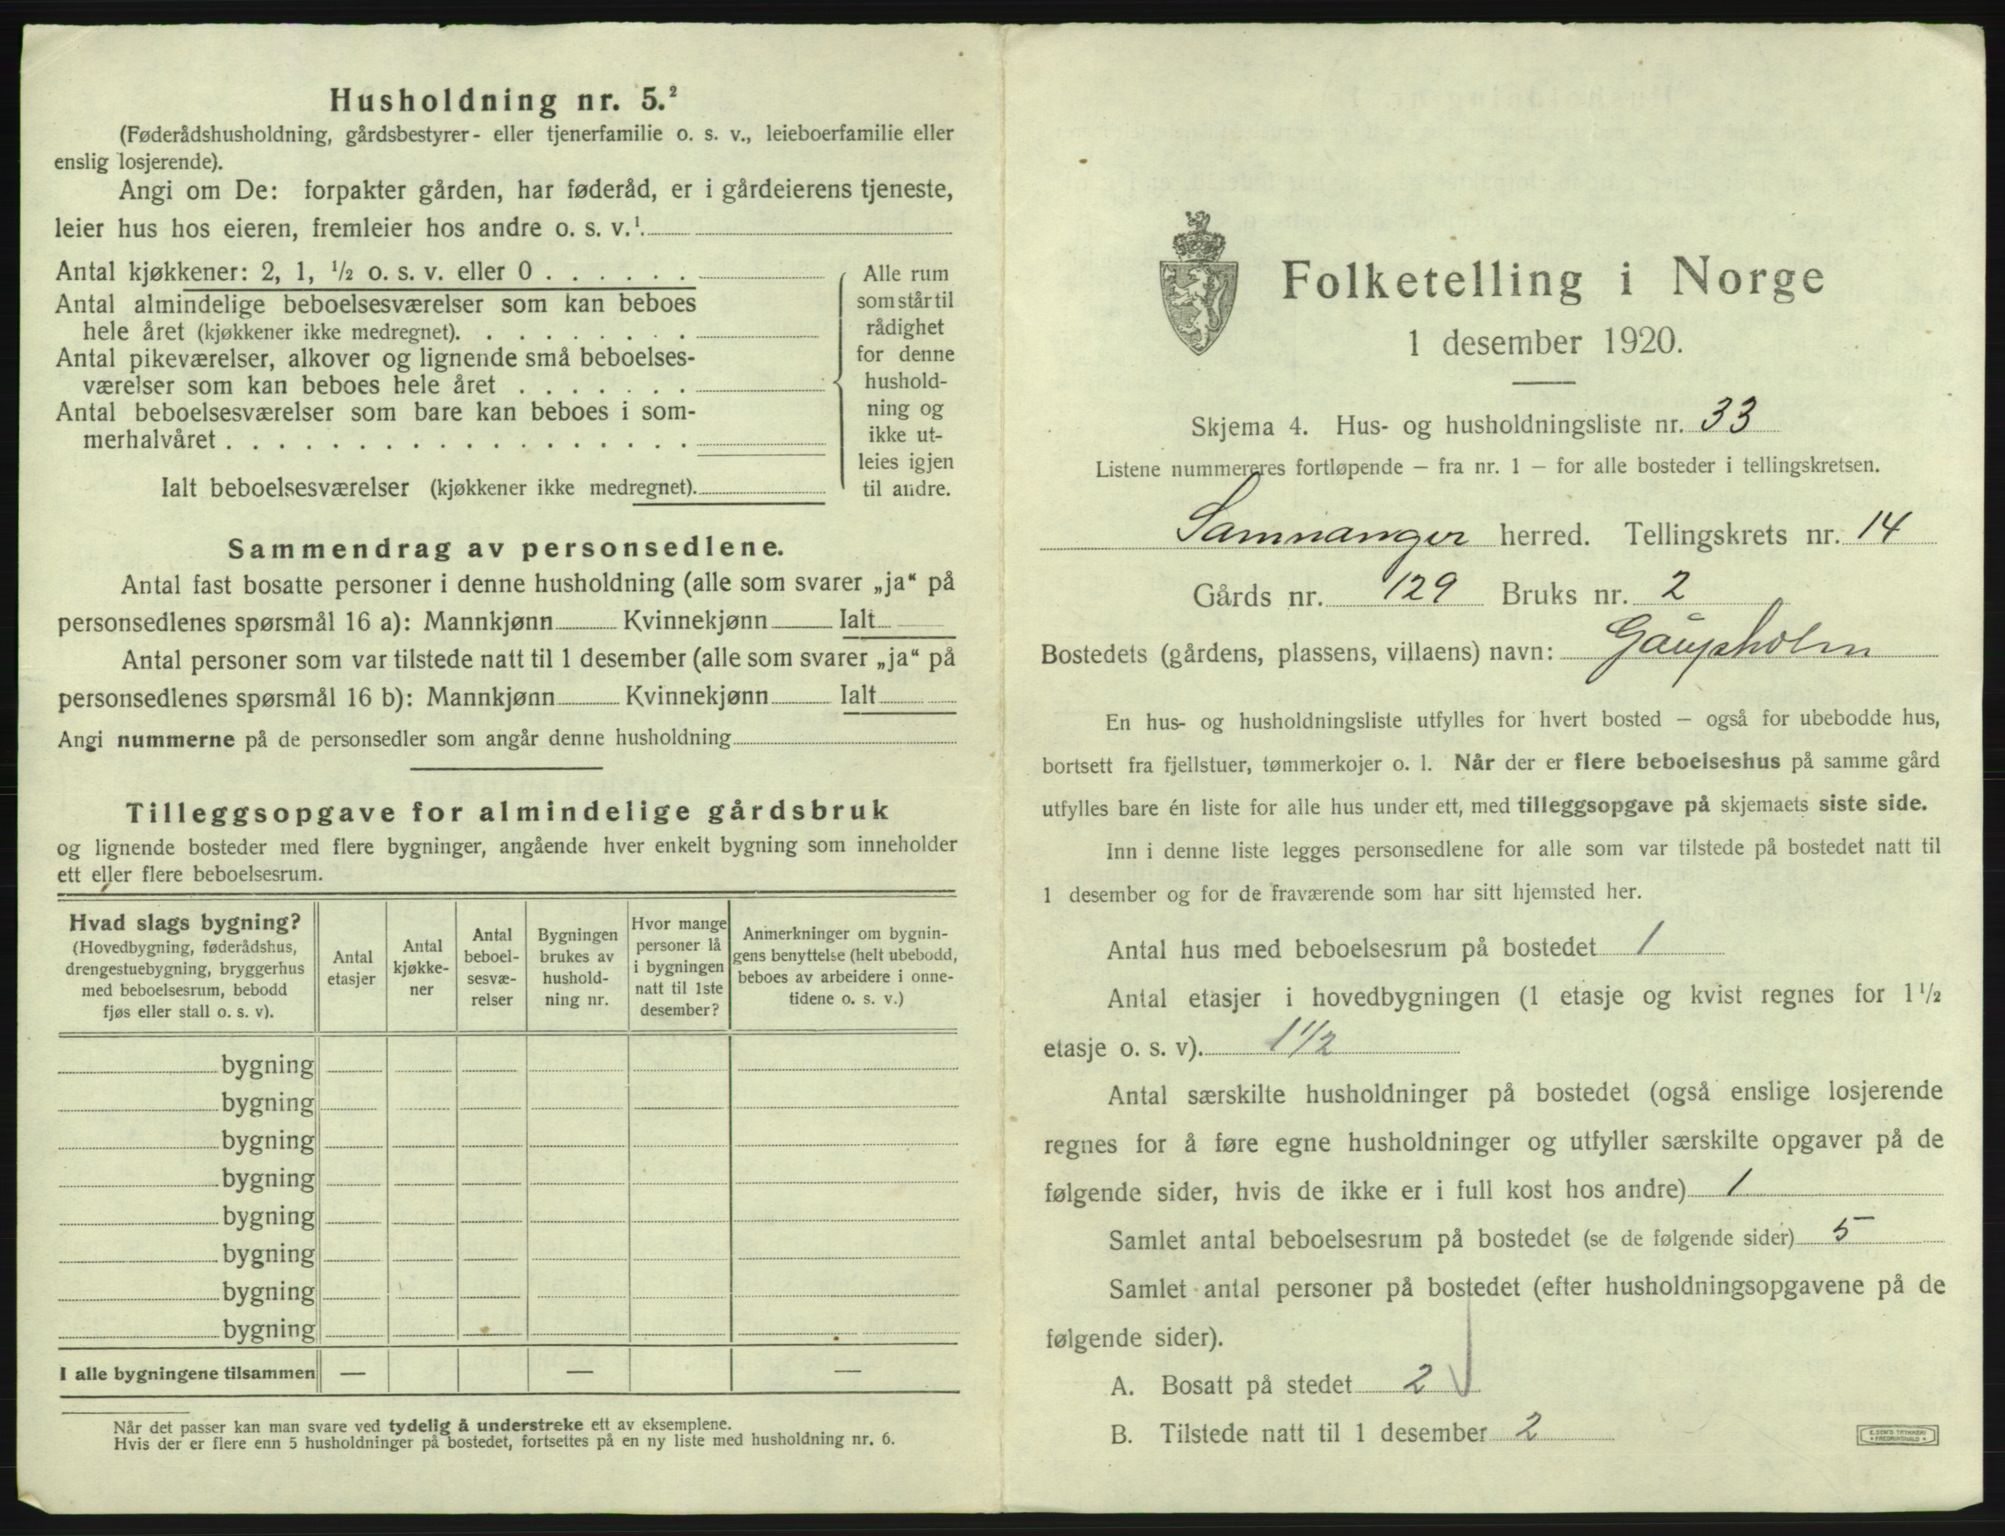 Husholdning nr. 5.²
(Føderådshusholdning, gårdsbestyrer- eller tjenerfamilie o. s. v., leieboerfamilie eller
enslig losjerende).
Angi om De: forpakter gården, har føderåd, er i gårdeierens tjeneste,
leier hus hos eieren, fremleier hos andre o. s. v.¹.
Antal kjøkkener: 2, 1, ½ o. s. v. eller 0 . . . . . .
Antal almindelige beboelsesværelser som kan beboes
hele året (kjøkkener ikke medregnet). . . . . . . . .
Antal pikeværelser, alkover og lignende små beboelses-
værelser som kan beboes hele året . . . . . . .
Antal beboelsesværelser som bare kan beboes i som-
merhalvåret . . . . . . . . . . . . . . . . . .
Ialt beboelsesværelser (kjøkkener ikke medregnet).
Alle rum
som står til
rådighet
for denne
hushold-
ning og
ikke ut-
leies igjen
til andre.
Sammendrag av personsedlene.
Antal fast bosatte personer i denne husholdning (alle som svarer „ja“ på
personsedlenes spørsmål 16 a): Mannkjønn Kvinnekjønn Ialt
Antal personer som var tilstede natt til 1 desember (alle som svarer „ja“ på
personsedlenes spørsmål 16 b): Mannkjønn Kvinnekjønn Ialt
Angi nummerne på de personsedler som angår denne husholdning
Tilleggsopgave for almindelige gårdsbruk
og lignende bosteder med flere bygninger, angående hver enkelt bygning som inneholder
ett eller flere beboelsesrum.
Hvad slags bygning?
(Hovedbygning, føderådshus,
drengestuebygning, bryggerhus
med beboelsesrum, bebodd
fjøs eller stall o. s. v).
Antal
etasjer
Antal
kjøkke-
ner
Antal
beboel-
sesvæ-
relser
Bygningen
brukes av
hushold-
ning nr.
Hvor mange
personer lå
i bygningen
natt til 1ste
desember?
Anmerkninger om bygnin-
gens benyttelse (helt ubebodd,
beboes av arbeidere i onne-
tidene o. s. v.)
bygning
bygning
bygning
bygning
bygning
bygning
bygning
bygning
I alle bygningene tilsammen — — —
Når det passer kan man svare ved tydelig å understreke ett av eksemplene.
Hvis der er flere enn 5 husholdninger på bostedet, fortsettes på en ny liste med husholdning nr. 6.
Folketelling i Norge
1 desember 1920.
Skjema 4. Hus- og husholdningsliste nr. 33
Listene nummereres fortløpende — fra nr. 1 — for alle bosteder i tellingskretsen.
Samnanger herred. Tellingskrets nr. 14
Gårds nr. 129 Bruks nr. 2
Bostedets (gårdens, plassens, villaens) navn: Gaupholm
En hus- og husholdningsliste utfylles for hvert bosted — også for ubebodde hus,
bortsett fra fjellstuer, tømmerkojer o. l. Når der er flere beboelseshus på samme gård
utfylles bare én liste for alle hus under ett, med tilleggsopgave på skjemaets siste side.
Inn i denne liste legges personsedlene for alle som var tilstede på bostedet natt til
1 desember og for de fraværende som har sitt hjemsted her.
Antal hus med beboelsesrum på bostedet 1
Antal etasjer i hovedbygningen (1 etasje og kvist regnes for 1½
etasje o. s. v). 1½
Antal særskilte husholdninger på bostedet (også enslige losjerende
regnes for å føre egne husholdninger og utfyller særskilte opgaver på de
følgende sider, hvis de ikke er i full kost hos andre) 1
Samlet antal beboelsesrum på bostedet (se de følgende sider) 5
Samlet antal personer på bostedet (efter husholdningsopgavene på de
følgende sider).
A. Bosatt på stedet 2
B. Tilstede natt til 1 desember 2